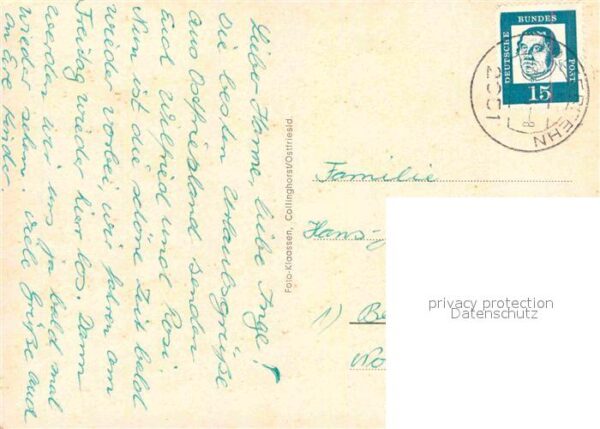 Lieber Hanne, liebe Inge!
Die besten Urlaubsgrüße
aus Ostfriesland senden
Euch Wilfried und Rosi.
Nun ist die schöne Zeit bald
wieder vorbei wir fahren am
Freitag wieder hier los. Dann
werden wir uns ja bald mal
wieder sehn viele Grüße auch
an die Kinder
Foto-Klaassen, Collinghorst/Ostfriesld.
DEUTSCHE BUNDES POST
15
2951
Familie
Hans-
1) Be
privacy protection
Datenschutz